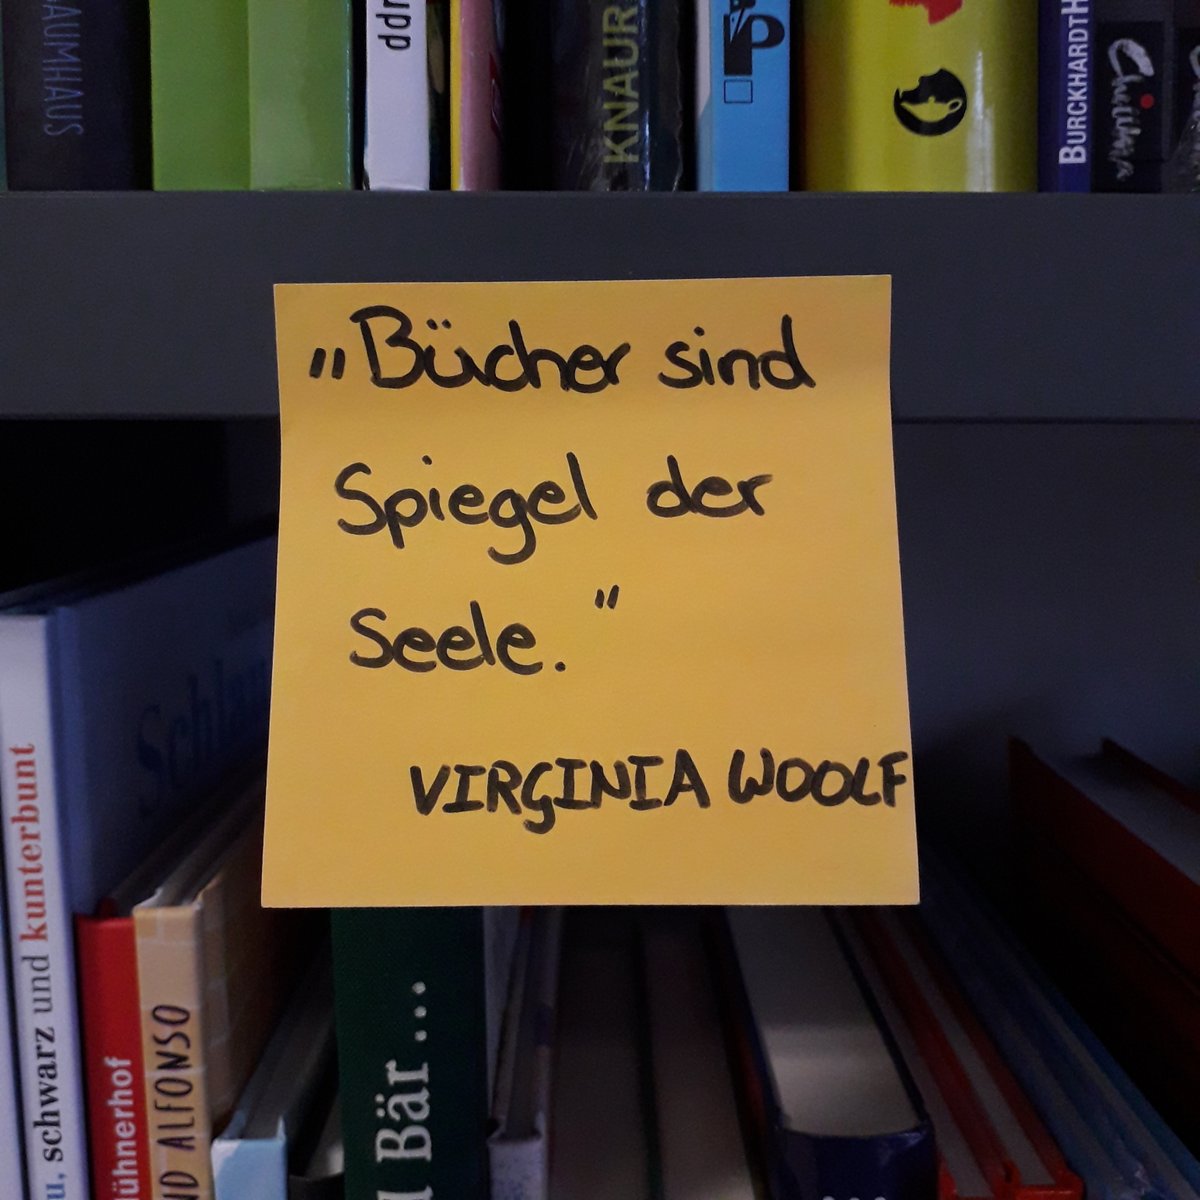 BAUMHAUS
ddr
KNAUR
P
BURCKHARDTH
„Bücher sind
Spiegel der
Seele."
VIRGINIA WOOLF
u, schwarz und kunterbunt
ühnerhof
ND ALFONSO
Bär ...